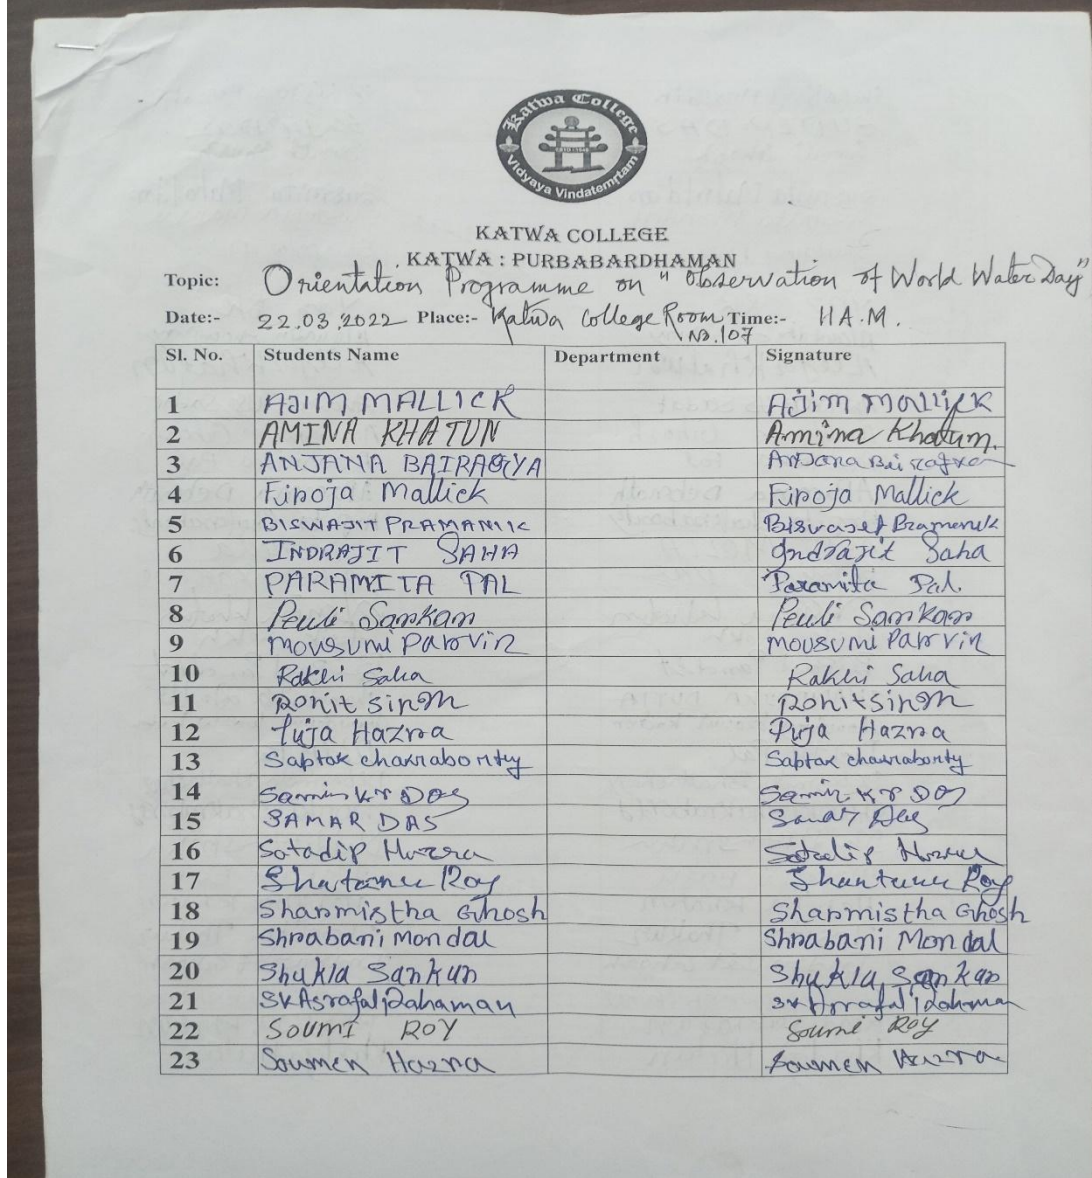 Katwa College
Vidyaya Vindatemrtam
KATWA COLLEGE
KATWA : PURBABARDHAMAN
Topic: Orientation Programme on "Observation of World Water Day"
Date:- 22.03.2022 Place:- Katwa College Room No.107 Time:- 11A.M.
Sl. No. Students Name Department Signature
1 AJIM MALLICK Ajim Mallick
2 AMINA KHATUN Amina Khatun.
3 ANJANA BAIRAGYA
4 Firoja Mallick Firoja Mallick
5 BISWAJIT PRAMANIK Biswajit Pramanik
6 INDRAJIT SAHA Indrajit Saha
7 PARAMITA PAL Paramita Pal.
8 Peuli Sarkar Peuli Sarkar
9 Mousumi Parvin Mousumi Parvin
10 Rakhi Saha Rakhi Saha
11 Rohit Singh Rohit Singh
12 Puja Hazra Puja Hazra
13 Saptak Chakraborty Saptak Chakraborty
14 Samir Kr Das Samir Kr Das
15 SAMAR DAS Samar Das
16 Satadip Hazra Satadip Hazra
17 Shatanu Roy Shantunu Roy
18 Sharmistha Ghosh Sharmistha Ghosh
19 Shrabani Mondal Shrabani Mondal
20 Shukla Sarkar Shukla Sarkar
21 Sk Asrafali Rahaman
22 SOUMI ROY Soumi Roy
23 Soumen Hazra Soumen Hazra